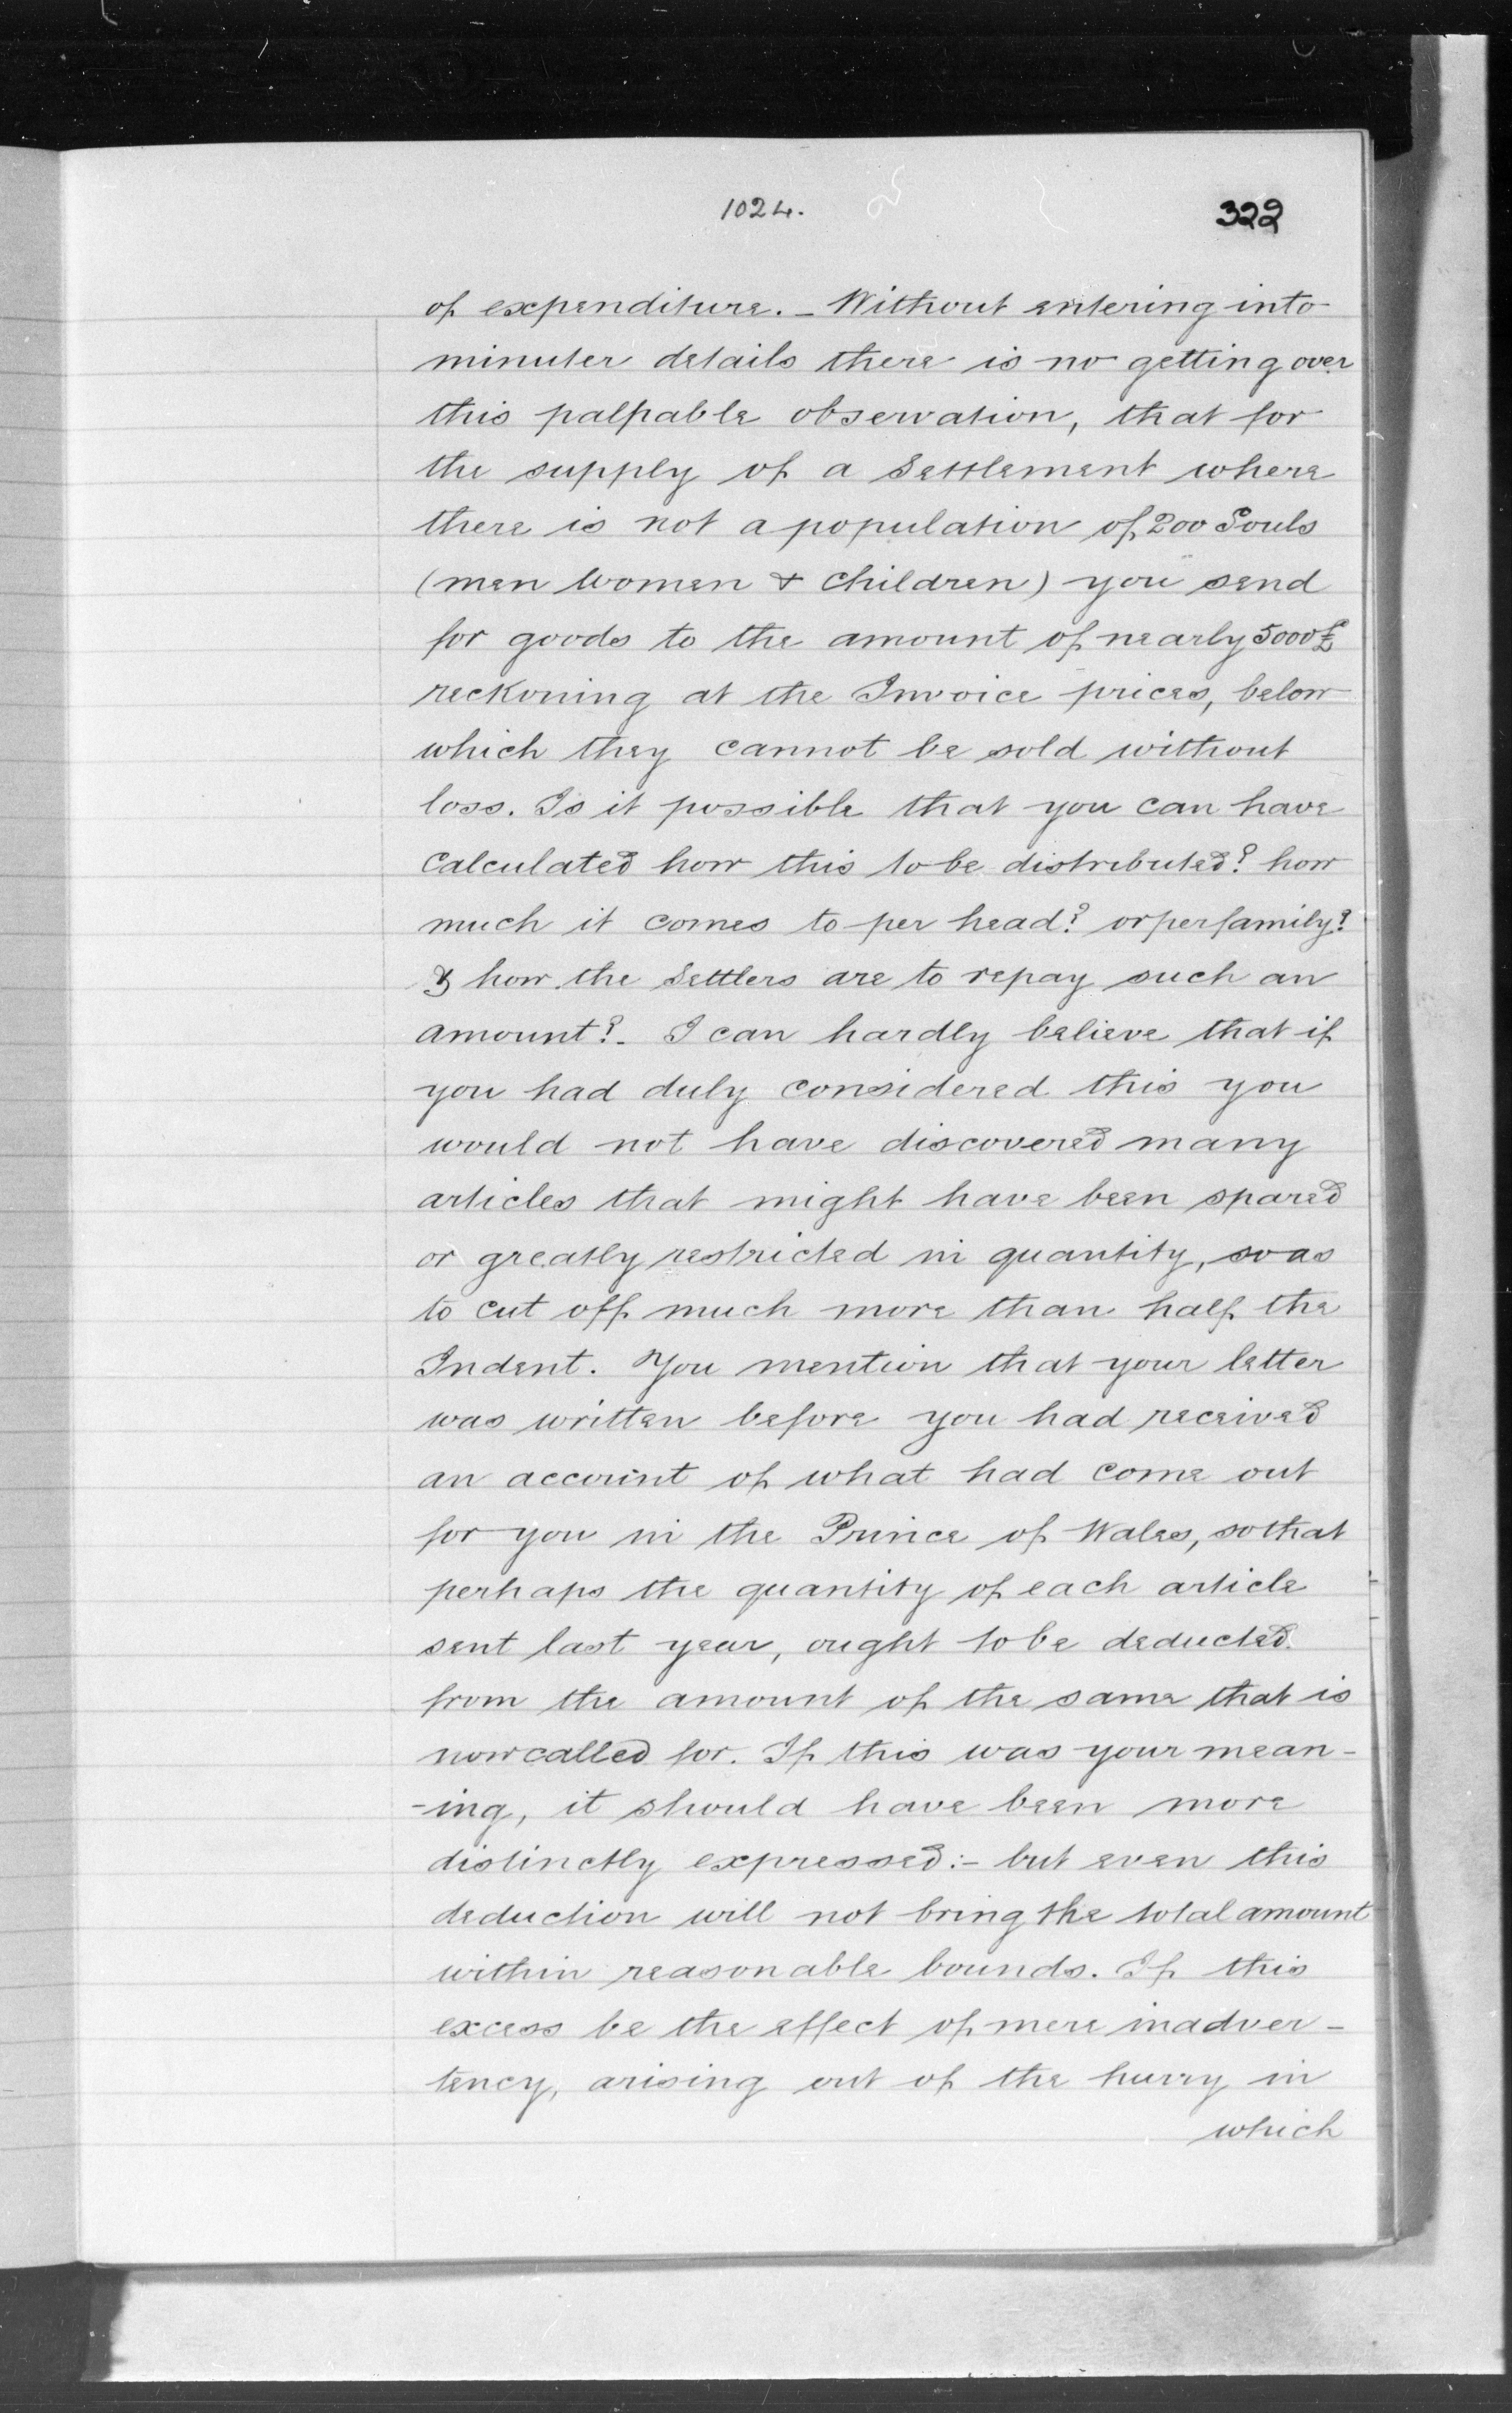 1024.
322
of expenditure. - Without entering into
minuter details there is no getting over
this palpable observation, that for
the supply of a Settlement where
there is not a population of 200 Souls
(men women & children) you send
for goods to the amount of nearly 5000£
reckoning at the Invoice prices, below
which they cannot be sold without
loss. Is it possible that you can have
calculated how this to be distributed? how
much it comes to per head? or per family?
& how the Settlers are to repay such an
amount?- I can hardly believe that if
you had duly considered this you
would not have discovered many
articles that might have been spared
or greatly restricted in quantity, so as
to cut off much more than half the
Indent. You mention that your letter
was written before you had received
an account of what had come out
for you in the Prince of Wales, so that
perhaps the quantity of each article
sent last year, ought to be deducted
from the amount of the same that is
now called for. If this was your mean-
-ing, it should have been more
distinctly expressed:- but even this
deduction will not bring the total amount
within reasonable bounds. If this
excess be the effect of mere inadver-
tency, arising out of the hurry in
which